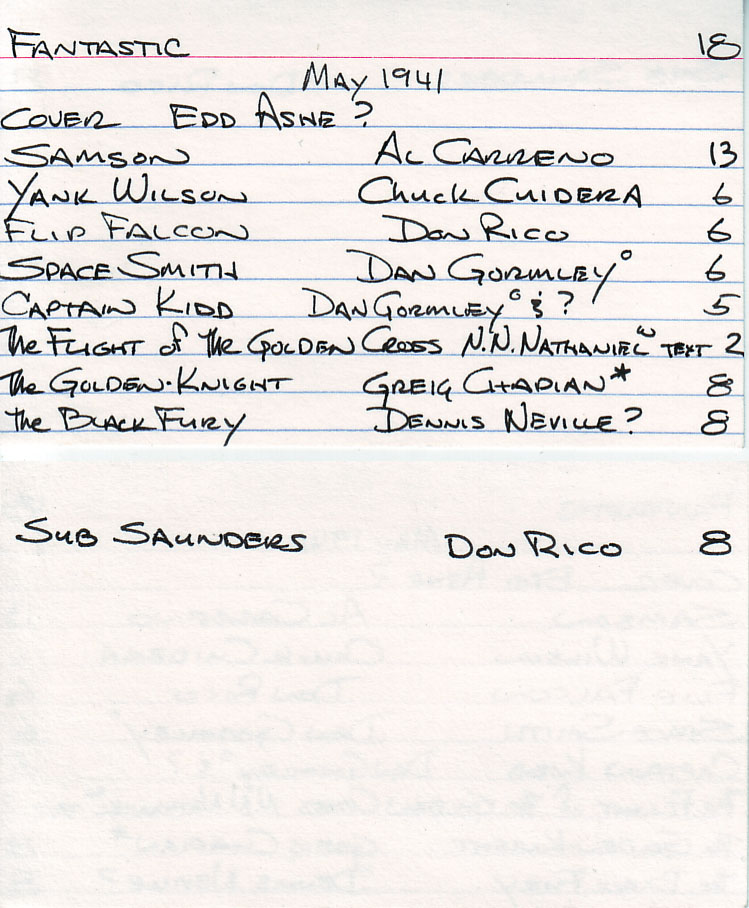 FANTASTIC 18
MAY 1941
COVER EDD ASHE ?
SAMSON AL CARRENO 13
YANK WILSON CHUCK CUIDERA 6
FLIP FALCON DON RICO 6
SPACE SMITH DAN GORMLEY° 6
CAPTAIN KIDD DAN GORMLEY° & ? 5
The FLIGHT of The GOLDEN CROSS N.N. NATHANIEL ʷ TEXT 2
The GOLDEN-KNIGHT GREIG CHADIAN* 8
the BLACK FURY DENNIS NEVILLE? 8
SUB SAUNDERS DON RICO 8